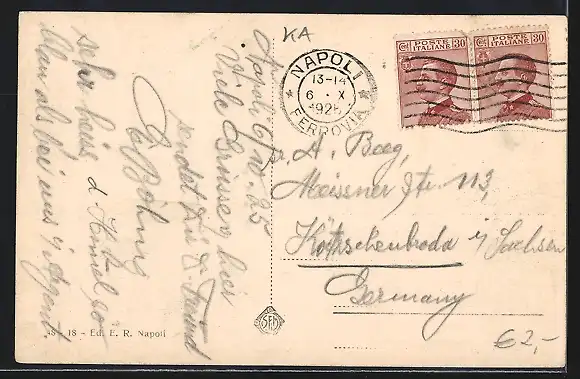 KA
Napoli 6/10. 25
Viele Grüsse v. hier
sendet Dir Dein Freund
E. Böhme
sehr heiss d. Himmel so
blau als bei uns i/ August.
48 - 18 - Ed. E. R. Napoli
SEM
NAPOLI
13-14
6 · X
1925
FERROVIA
POSTE ITALIANE 30
POSTE ITALIANE 30
A.
Meissner Str. 113,
Kötzschenbroda i/ Sachsen
Germany
€2,-